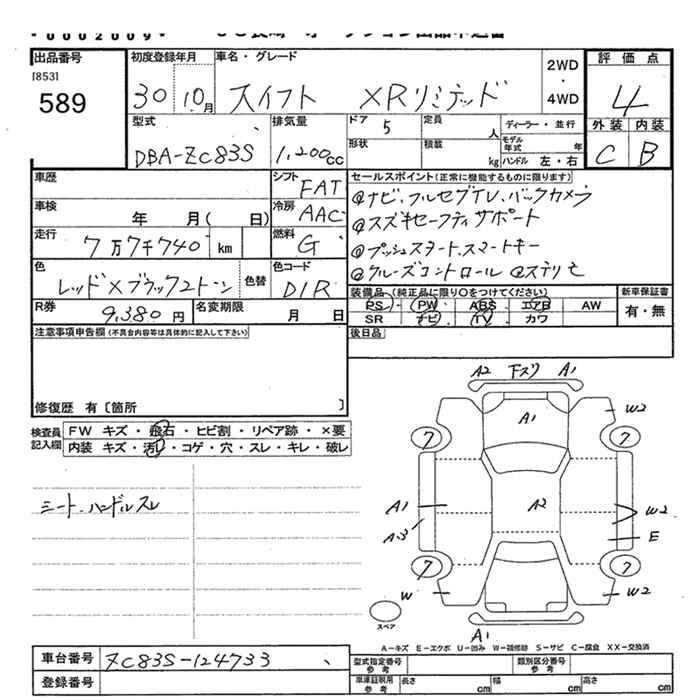 *0002009*
出品番号 初度登録年月 車名・グレード 2WD・4WD 評価点
[853]
589 30 10月 スイフト XRリミテッド 4
型式 排気量 ドア 5 定員 人 ディーラー・並行 外装 内装
DBA-ZC83S 1,200cc 形状 積載 kg モデル年式 年 ハンドル 左・右 C B
車歴 シフト FAT セールスポイント(正常に機能するものに限ります)
車検 年 月( 日) 冷房 AAC @ナビ、フルセグTV、バックカメラ
走行 7万7千740 km 燃料 G @スズキセーフティサポート
@プッシュスタート、スマートキー
色 レッド×ブラック2トーン 色替 色コード D1R @クルーズコントロール @ステリモ
装備品(純正品に限り○をつけてください) 新車保証書
R券 9,380円 名変期限 月 日 PS PW ABS エアB AW 有・無
SR ナビ TV カワ
注意事項申告欄(不具合内容等は具体的に記入して下さい) 後日品
修復歴 有〔箇所 〕
検査員記入欄 FW キズ・飛石・ヒビ割・リペア跡・×要
内装 キズ・汚れ・コゲ・穴・スレ・キレ・破レ
シート、ハンドルスレ
A2 下スリ A1
A1 W2
7 7
A1 A2 W2
A-3 E
7 7
W W2
スペア A1
A-キズ E-エクボ U-凹み W-補修跡 S-サビ C-腐食 XX-交換済
車台番号 ZC83S-124733 型式指定番号 参考 類別区分番号 参考
登録番号 車庫証明用 参考 長さ cm 幅 cm 高さ cm